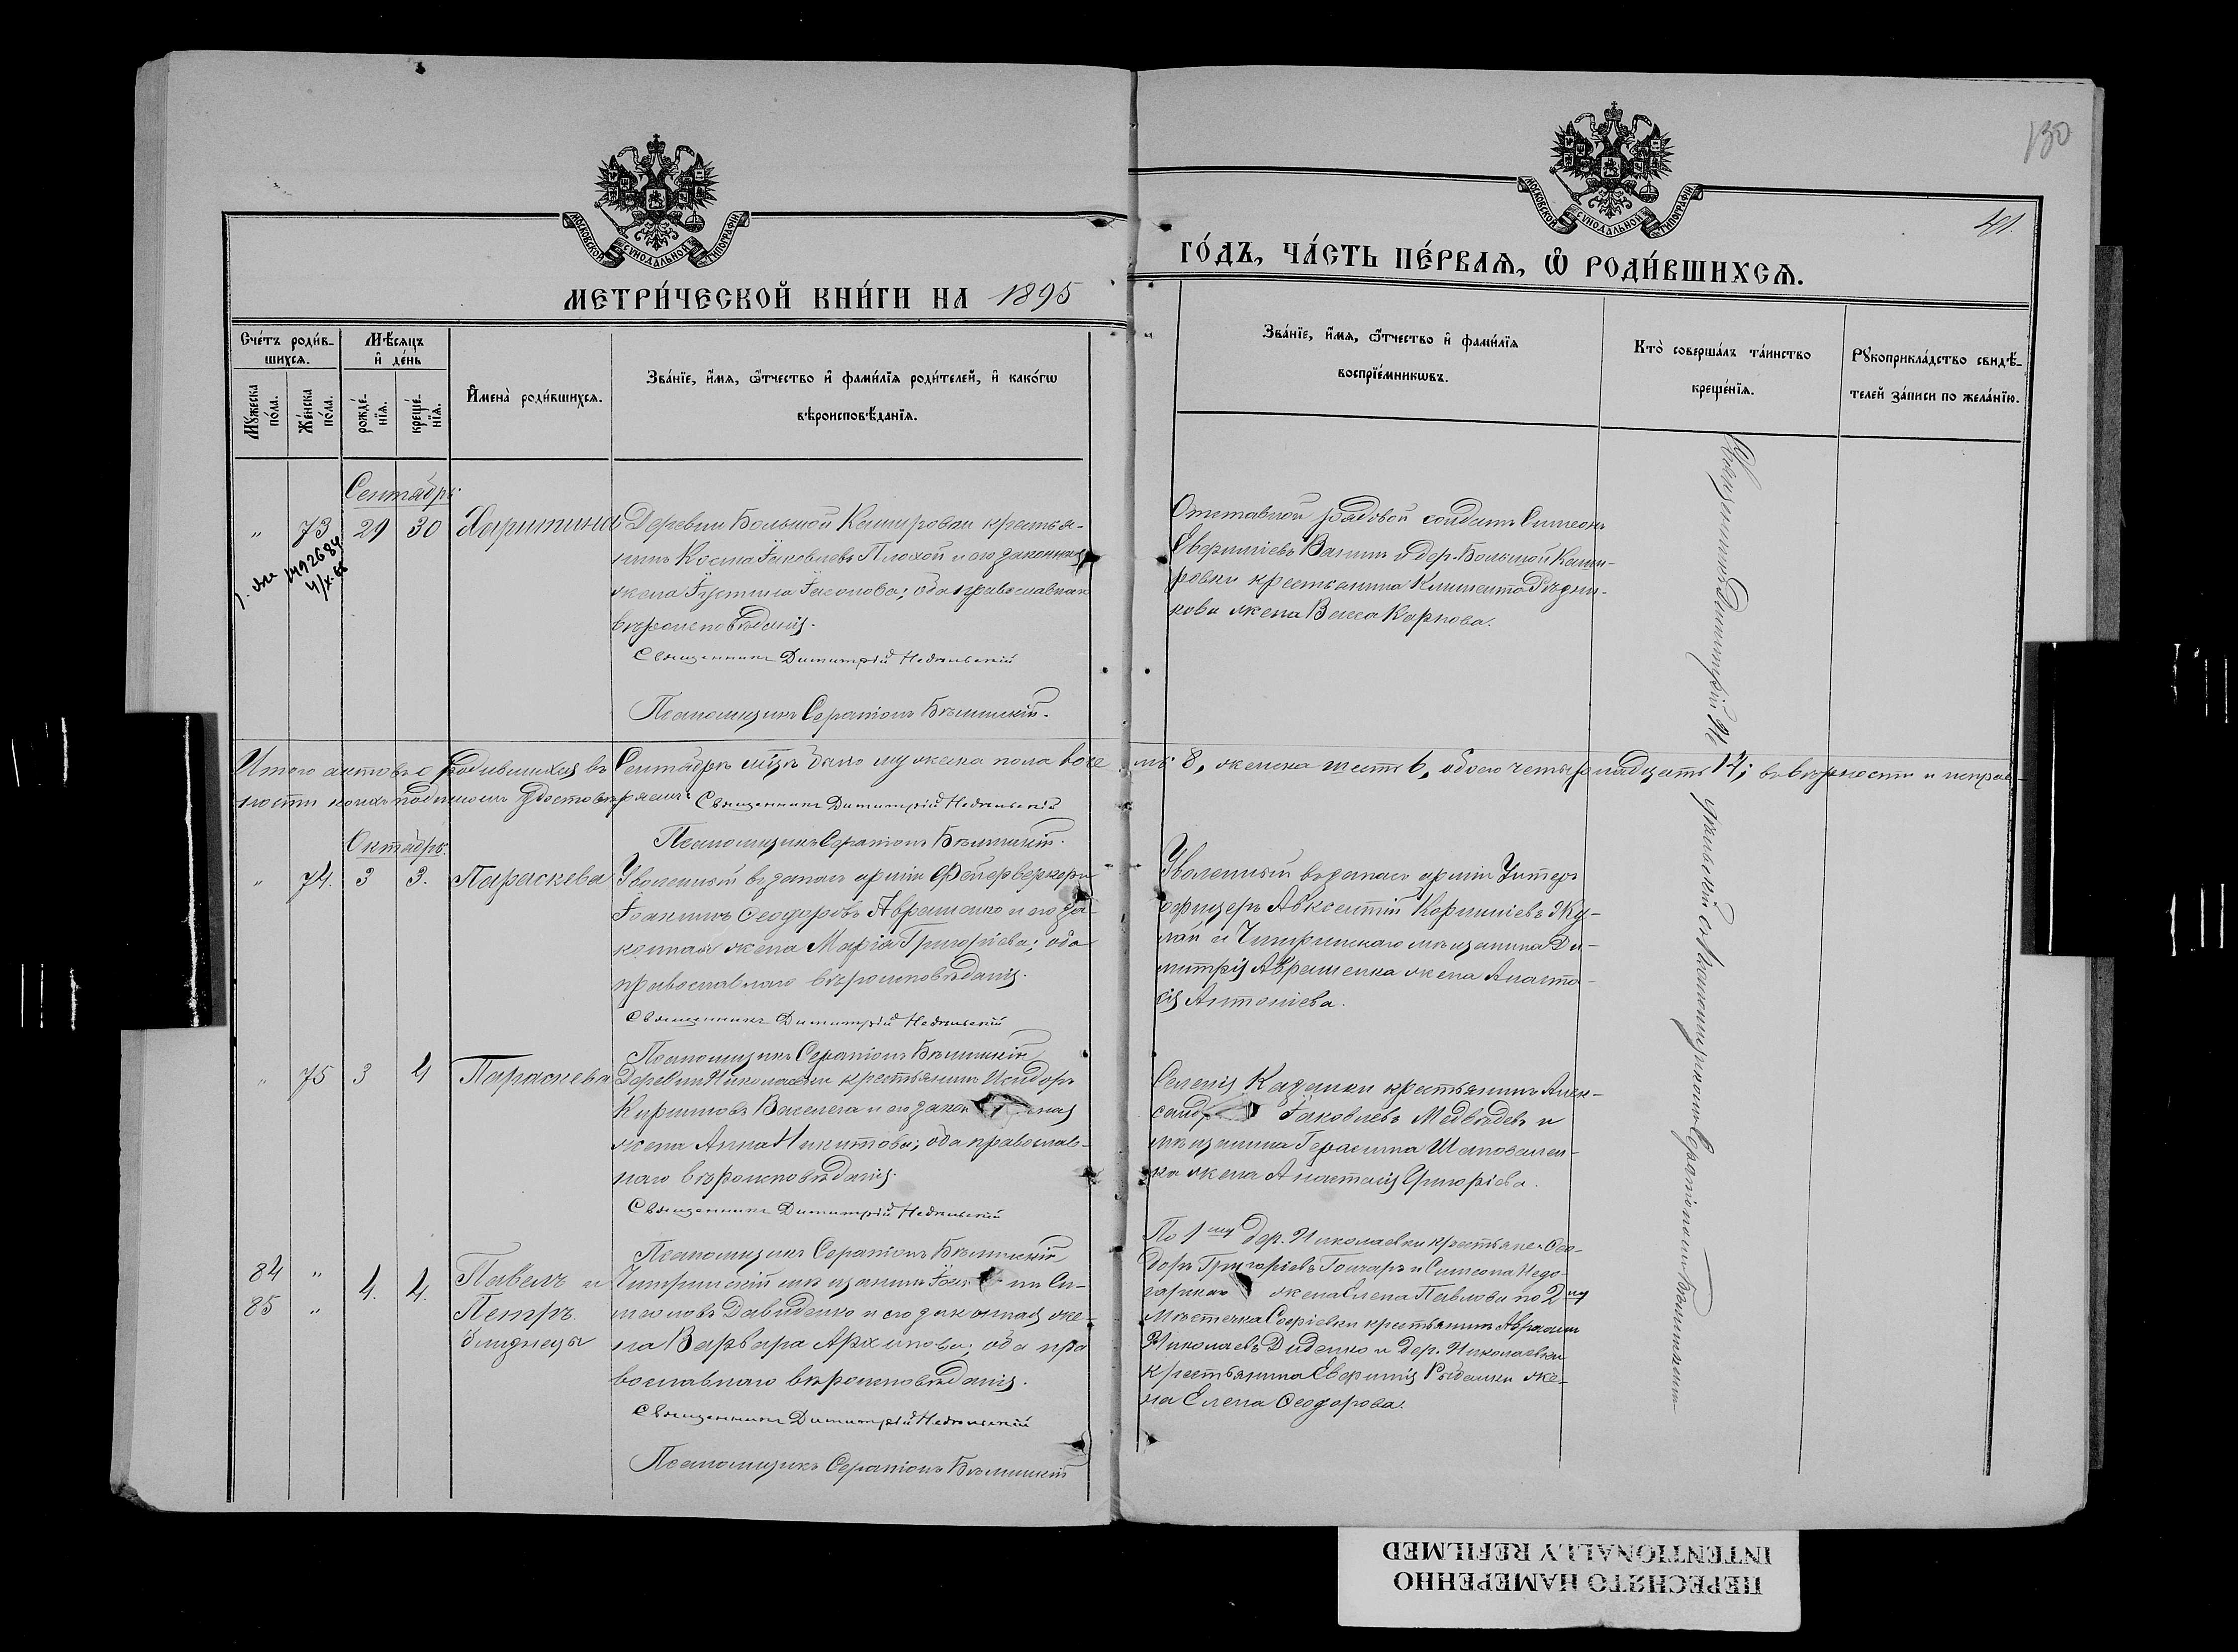 130
41.
МОСКОВСКОЙ СУНОДАЛЬНОЙ ТИПОГРАФІИ
МОСКОВСКОЙ СУНОДАЛЬНОЙ ТИПОГРАФІИ
МЕТРИ́ЧЕСКОЙ КНИ́ГИ НА 1895
ГО́ДЪ, ЧА́СТЬ ПЕ́РВАѦ, Ѽ РОДИ́ВШИХСѦ.
Сче́тъ роди́в-
шихсѧ.
Мꙋжеска
по́ла.
Же́нска
по́ла.
Мѣ́сѧцъ
и҆ де́нь
рожде́-
нїѧ.
креще́-
нїѧ.
И҆мена̀ роди́вшихсѧ.
Зва́нїе, и҆́мѧ, ѻ҆́тчество и҆ фами́лїѧ роди́телей, и҆ како́гѡ
вѣроисповѣ́данїѧ.
Зва́нїе, и҆́мѧ, ѻ҆́тчество и҆ фами́лїѧ
воспрїе́мникѡвъ.
Кто̀ соверша́лъ та́инство
креще́нїѧ.
Рꙋкоприкла́дство свидѣ́-
телей за́писи по жела́нїю.
Сентябрь
" 73 29 30 Харитина
Деревни Большой Костровки крестья-
нинъ Косма Іаковлевъ Плохой и его законная
жена Іустина Іасонова; оба православнаго
вѣроисповѣданія.
Священникъ Димитрій Недѣльскій
Псаломщикъ Серапіонъ Бѣлинскій.
Отставной рядовой солдатъ Симеонъ
Евфиміевъ Ванинъ и дер. Большой
крестьянина Климента
жена Васса Карпова.
Итого актовъ о родившихся въ Сентябрѣ м-цѣ было мужеска пола 8, женска шесть 6, обоего четырнадцать 14; въ вѣрности и исправ-
ности коихъ подписомъ удостовѣряемъ: Священникъ Димитрій Недѣльскій
Псаломщикъ Серапіонъ Бѣлинскій.
Октябрь.
" 74. 3 3. Параскева
Уволенный въ запасъ арміи Фейерверкеръ
Іоакимъ Ѳеодоровъ Авраменко и его за-
конная жена Марія Григоріева; оба
православнаго вѣроисповѣданія.
Священникъ Димитрій Недѣльскій
Псаломщикъ Серапіонъ Бѣлинскій
Уволенный въ запасъ арміи Унтеръ
офицеръ Авксентій
и Чигиринскаго мѣщанина Ди-
митрія Авраменка жена Анаста-
сія Антоніева.
" 75 3 4 Параскева
Деревни Николаевки крестьянинъ Исидоръ
Кирилловъ и его законная
жена Анна Никитова; оба православ-
наго вѣроисповѣданія.
Священникъ Димитрій Недѣльскій
Псаломщикъ Серапіонъ Бѣлинскій
Селенія Казанки крестьянинъ Алек-
сандръ Іаковлевъ Медвѣдевъ и
мѣщанина Герасима Шаповален-
ка жена Анастасія Григоріева.
84 " 4. 4. Павелъ и
85 " Петръ.
близнецы
Чигиринскій мѣщанинъ Си-
меоновъ Давиденко и его законная же-
на Варвара Архипова; оба пра
вославнаго вѣроисповѣданія.
Священникъ Димитрій Недѣльскій
Псаломщикъ Серапіонъ Бѣлинскій
По 1му дер. Николаевки крестьяне: Ѳео-
доръ Григоріевъ Гончаръ и Симеона
жена Елена Павлова по 2му
Мѣстечка Софіевки крестьянинъ Авраамъ
Николаевъ Диденко и дер. Николаевки
крестьянина Евфимія же-
на Елена Ѳеодорова.
Священникъ Димитрій Недѣльскій съ Псаломщикомъ Серапіономъ Бѣлинскимъ
ПЕРЕСНЯТО НАМЕРЕННО
INTENTIONALLY REFILMED